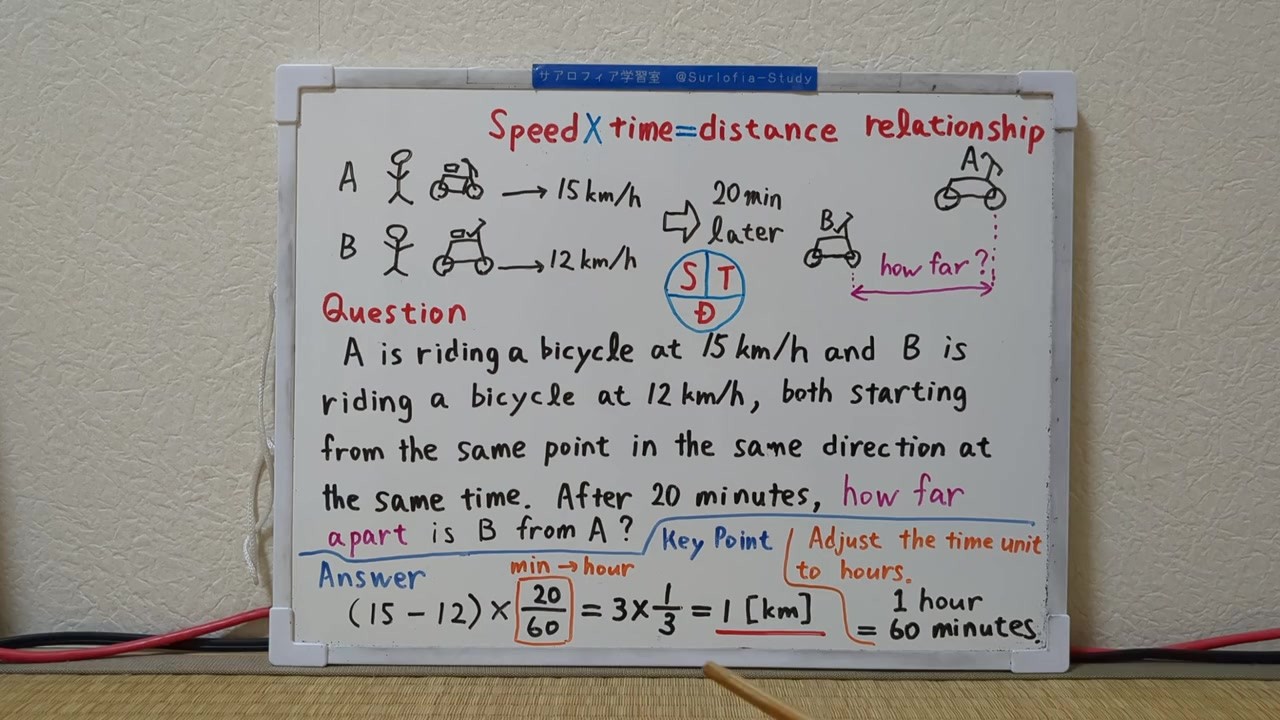 サアロフィア学習室 @Surlofia-Study
Speed×time=distance relationship
A → 15km/h
B → 12km/h
20min
later
S T
D
B
A
how far?
Question
A is riding a bicycle at 15km/h and B is
riding a bicycle at 12km/h, both starting
from the same point in the same direction at
the same time. After 20 minutes, how far
apart is B from A?
Key Point
Adjust the time unit
to hours.
1 hour
= 60 minutes.
Answer
min → hour
(15-12)×20/60=3×1/3=1[km]